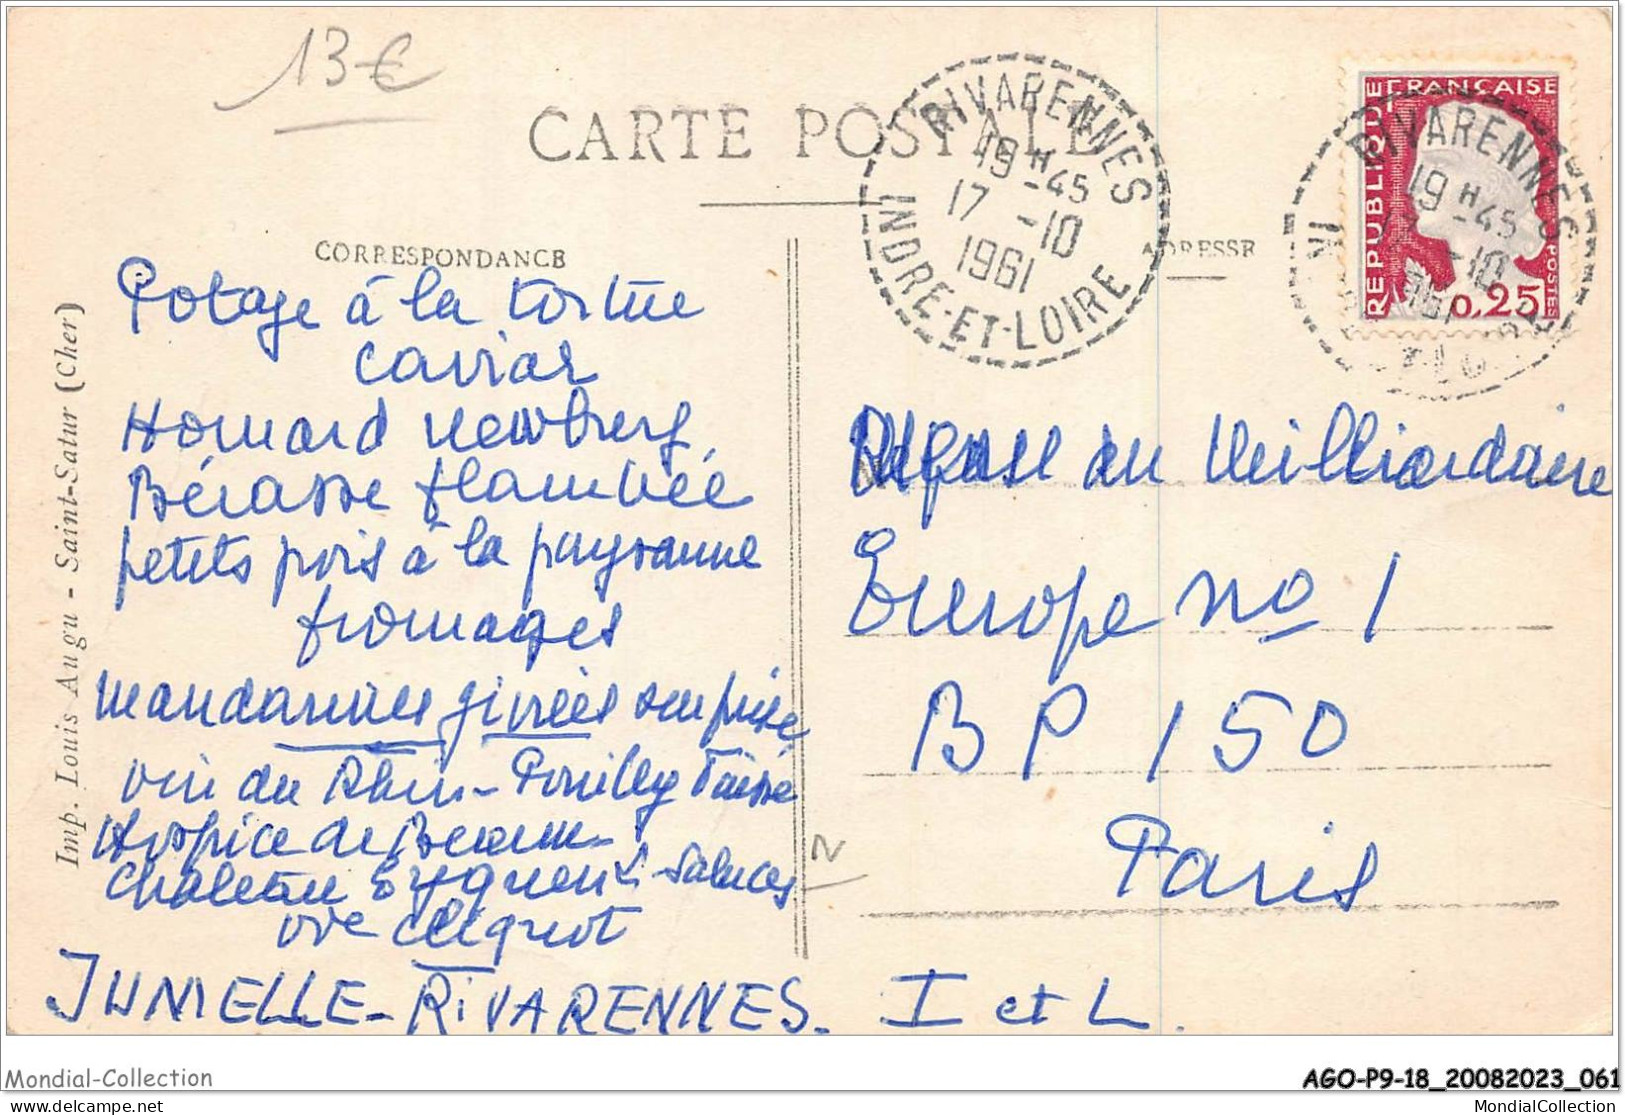 13€
CARTE POSTALE
RIVARENNES
19H-45
17 -10
1961
INDRE-ET-LOIRE
REPUBLIQUE FRANÇAISE
POSTES
0,25
RIVARENNES
19H-45
-10
1961
CORRESPONDANCE
ADRESSE
Potage à la tortue
caviar
Homard Newberg
Bécasse flambée
petits pois à la paysanne
fromages
mandarines givrées surprise
vin du Rhin - Pouilly
Hospice de Beaune
Chateau Yquem Lur Saluces
vve Clicquot
JUNIELLE - RIVARENNES. I et L.
Repas du Milliardaire
Europe no 1
BP 150
Paris
N
Imp. Louis Augu - Saint-Satur (Cher)
Mondial-Collection
AGO-P9-18_20082023_061
delcampe.net
MondialCollection